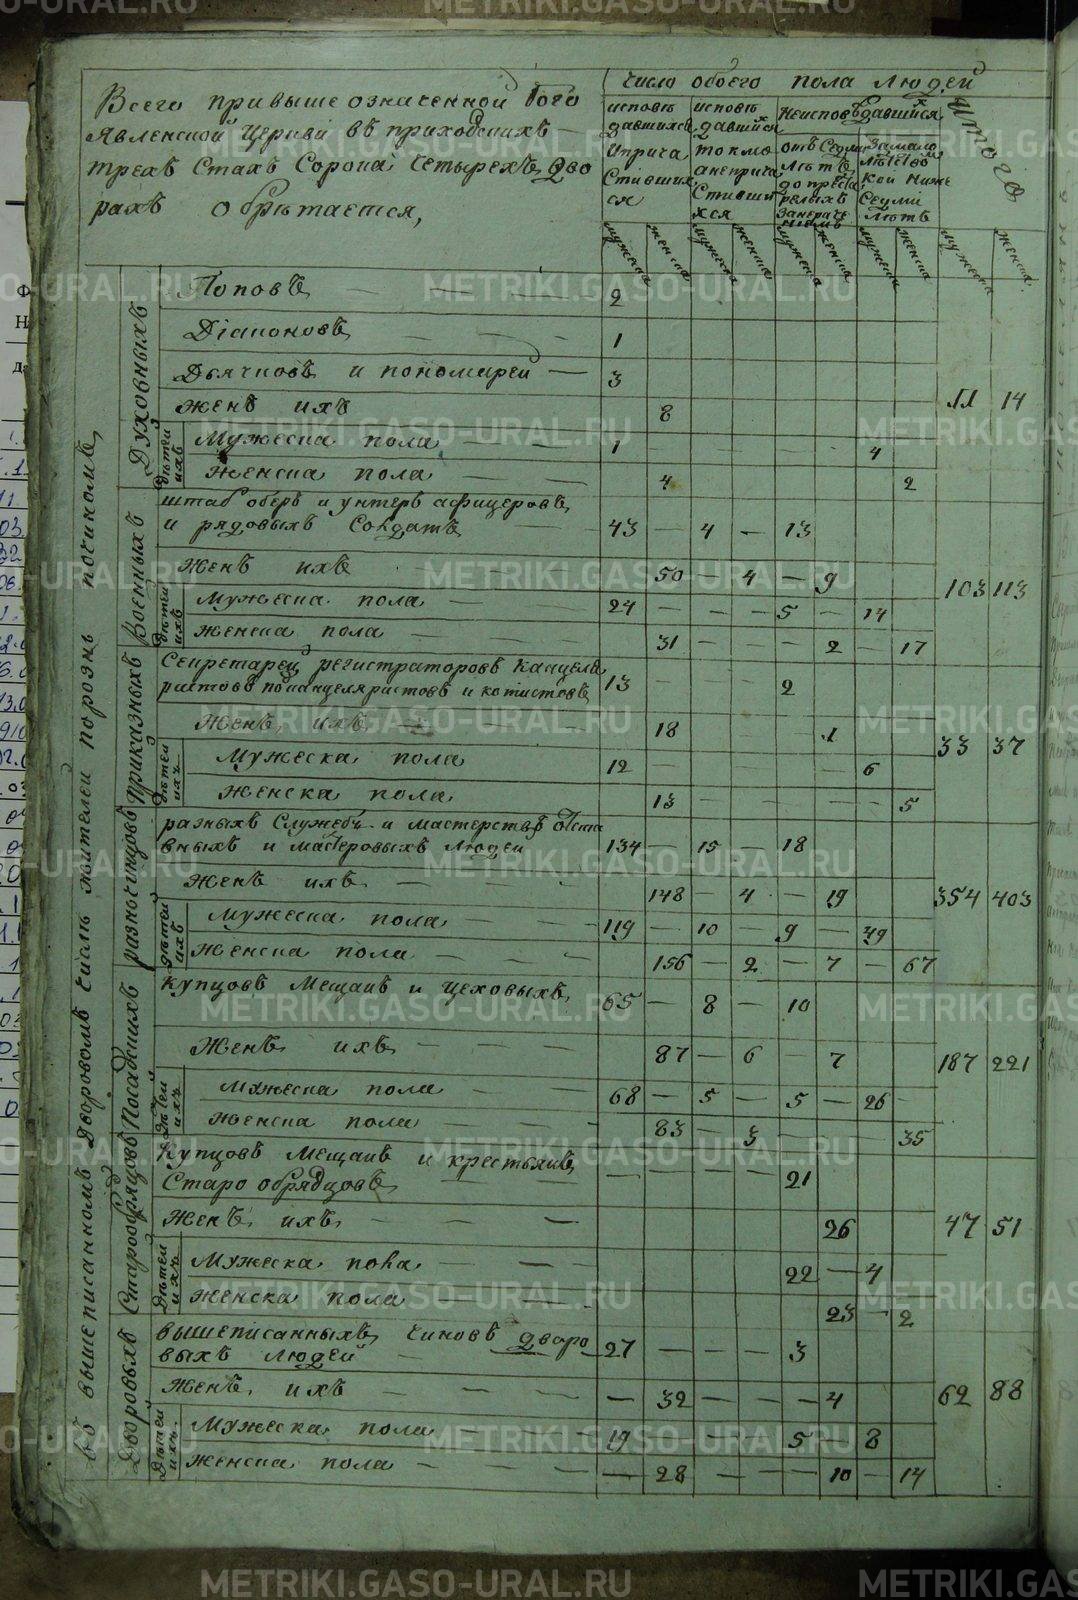 Всего при выше означенной Бого
Явленской церкви въ приходскихъ
трехъ Стахъ Сорока четырехъ дво
рахъ обрѣтается,
число обоего пола людей
исповѣ
давшихся
и прича
стивших
ся
исповѣ
давшихся
токмо
а неприча
стивши
хся
Неисповѣдавшихся
отъ седми
лѣтъ
до преста
релыхъ
Замало
лѣтство
Седми
лѣтъ
Итого
мужеска женска мужеска женска мужеска женска мужеска женска мужеска женска
во вышеписанномъ дворовомъ числѣ жителей порознь по чиномъ,
Духовныхъ
Поповъ — 2
Діаконовъ — — 1
Дьячковъ и пономарей — 3
женъ ихъ 8
11 14
Дѣтей ихъ
Мужеска пола — — 1 — — — — — 4
Женска пола — — 4 2
Военныхъ
штаб обер и унтеръ афицеровъ
и рядовыхъ солдатъ — 43 — 4 — 13
Женъ ихъ — — 50 — 4 — 9
103 113
Дѣтей ихъ
Мужеска пола — — 24 — — — 5 — 14
Женска пола — — 31 — — — 2 — 17
Приказныхъ
Секретарей регистраторовъ канцеля
ристовъ покапцеляристовъ и копистовъ 13 — — — 2
Женъ ихъ — — 18 1
33 37
Дѣтей ихъ
Мужеска пола 12 — — — — — 6
Женска пола 13 — — — — — 5
разночинцовъ
разныхъ Службъ и мастерствъ отста
вныхъ и мастеровыхъ людей 134 — 15 — 18
Женъ ихъ — — 148 — 4 — 19
354 403
Дѣтей ихъ
Мужеска пола — — 119 — 10 — 9 — 49
Женска пола — — 156 — 2 — 7 — 67
Посадскихъ
Купцовъ Мещанъ и цеховыхъ, 65 — 8 — 10
Женъ ихъ — — — 87 — 6 — 7
187 221
Дѣтей ихъ
Мужеска пола — — 68 — 5 — 5 — 26 —
Женска пола — — 83 — 3 — — — 35
Старообрядцовъ
Купцовъ Мещанъ и крестьянъ,
Старо обрядцовъ — — — 21
Женъ ихъ — — — 26
47 51
Дѣтей ихъ
Мужеска пола — — 22 — 4
Женска пола — — 23 — 2
Дворовыхъ
вышеписанныхъ чиновъ дворо
выхъ людей — 27 — — — 3
Женъ, ихъ — — — — 32 — — — 4
62 88
Дѣтей ихъ
Мужеска пола — — 19 — — — 5 — 8
Женска пола — — — 28 — — — 10 — 14
METRIKI.GASO-URAL.RU